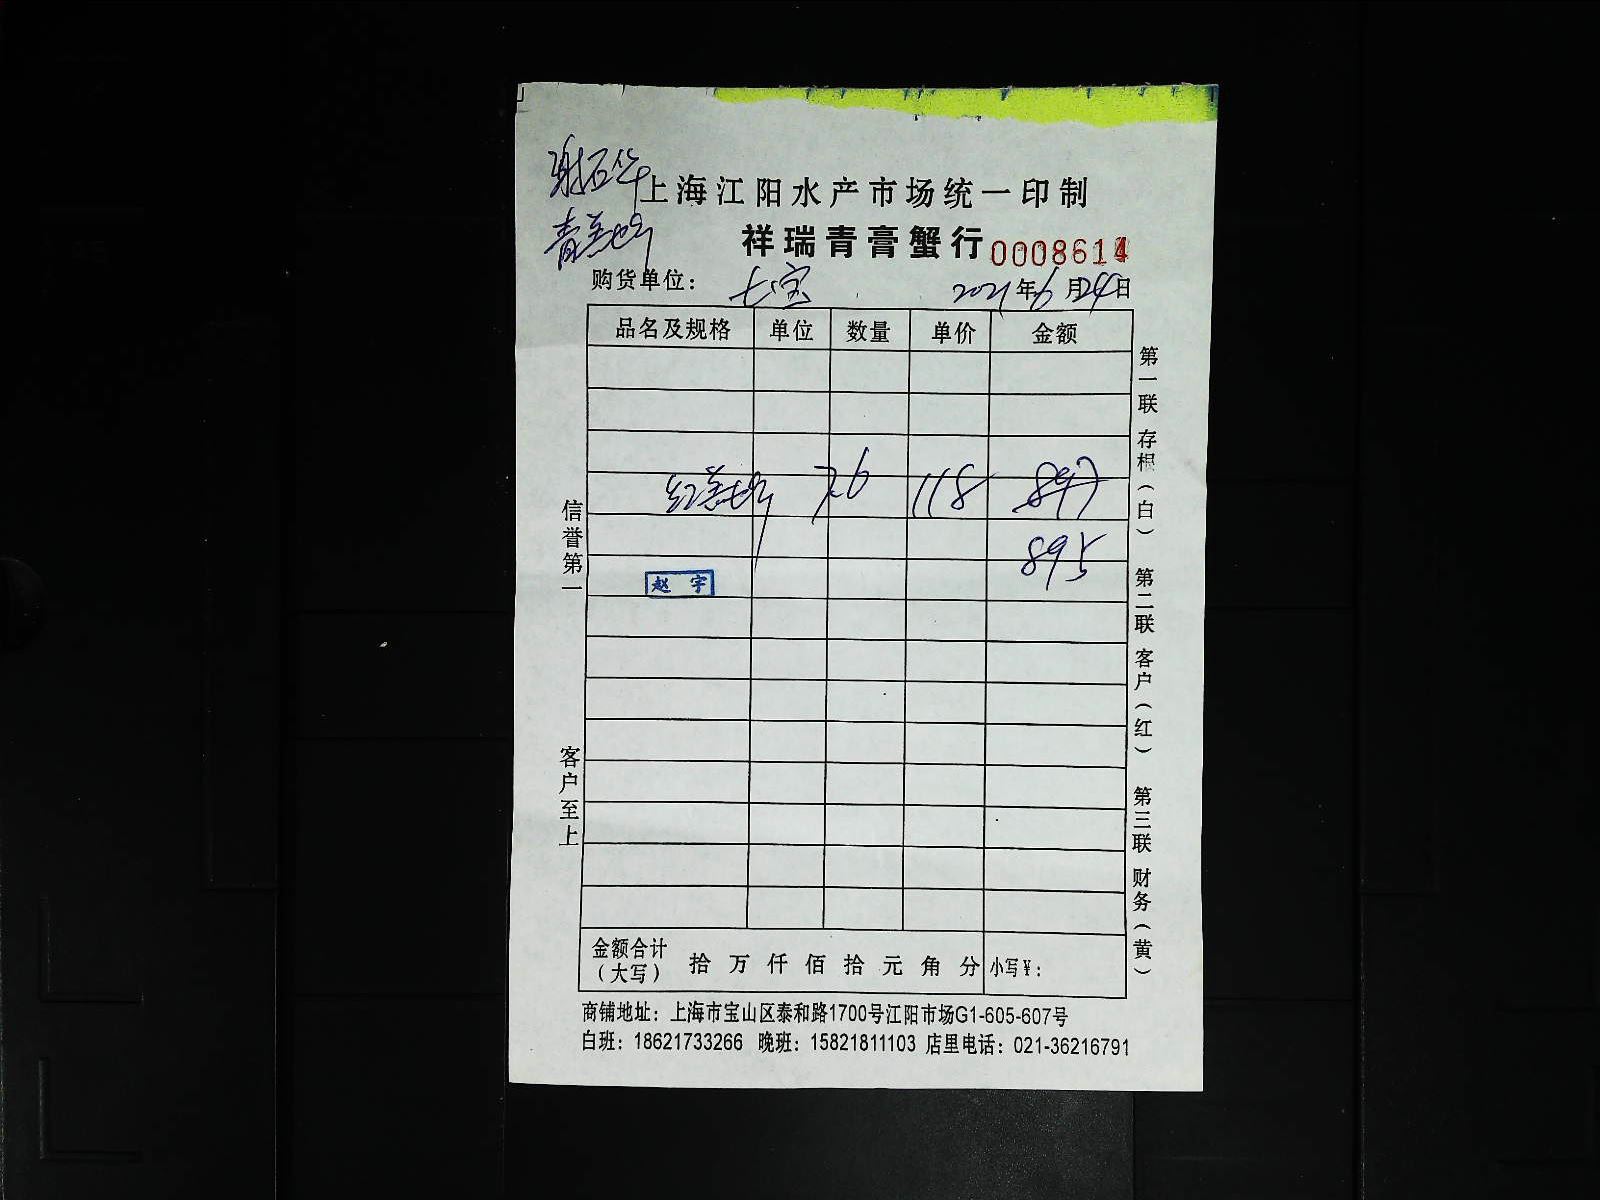 谢石华
上海江阳水产市场统一印制
青羔蟹
祥瑞青膏蟹行 0008614
购货单位： 七宝 2021年6月24日
品名及规格 单位 数量 单价 金额
7.6 118 897
895
赵宇
金额合计（大写） 拾 万 仟 佰 拾 元 角 分 小写￥：
商铺地址：上海市宝山区泰和路1700号江阳市场G1-605-607号
白班：18621733266 晚班：15821811103 店里电话：021-36216791
信誉第一 客户至上
第一联 存根（白） 第二联 客户（红） 第三联 财务（黄）